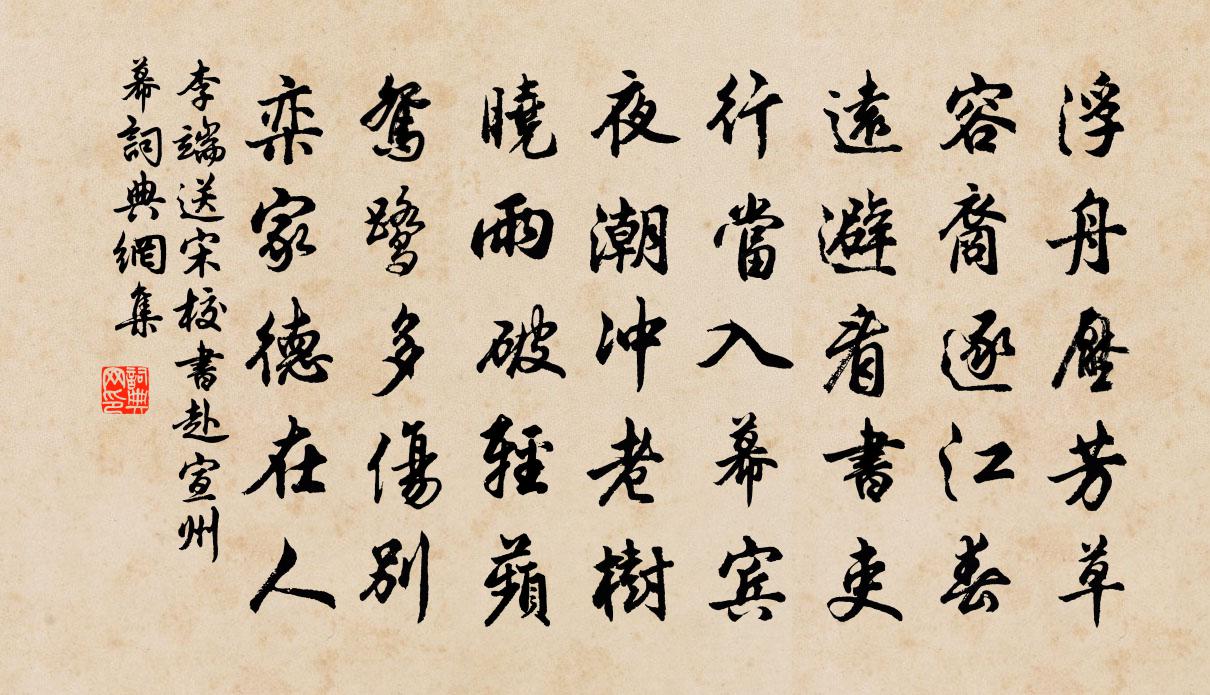 浮舟壓芳草
容裔逐江春
遠避看書吏
行當入幕賓
夜潮冲老樹
曉雨破輕蘋
鴛鷺多傷別
欒家德在人
李端送宋校書赴宣州
幕詞典網集
詞典网印